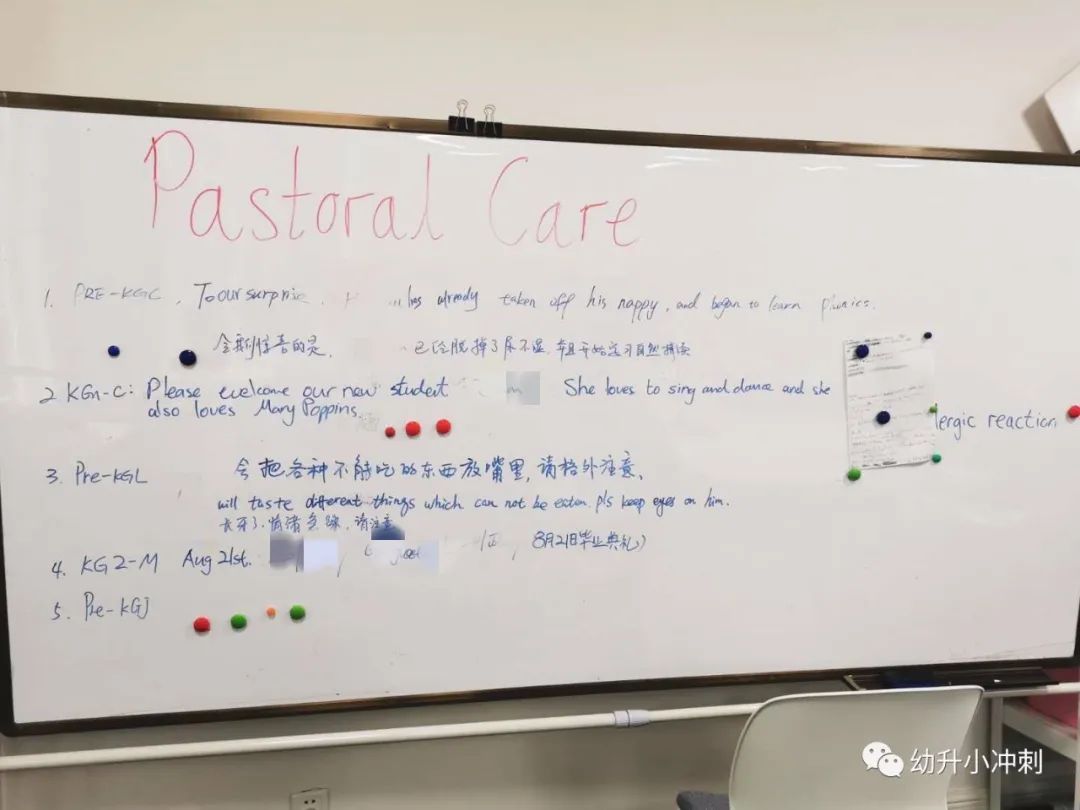 Pastoral Care
1. PRE-KGC, To our surprise, has already taken off his nappy, and began to learn phonics.
令我们惊喜的是, 已经脱掉了尿不湿,并且开始学习自然拼读
2 KGn-C: Please welcome our new student She loves to sing and dance and she
also loves Mary Poppins.
lergic reaction
3. Pre-KGL 会把各种不能吃的东西放嘴里,请格外注意、
will taste different things which can not be eaten. pls keep eyes on him.
长牙了,情绪急躁,请注意
4. KG2-M Aug 21st. 8月21日毕业典礼)
5. Pre-KGJ
幼升小冲刺